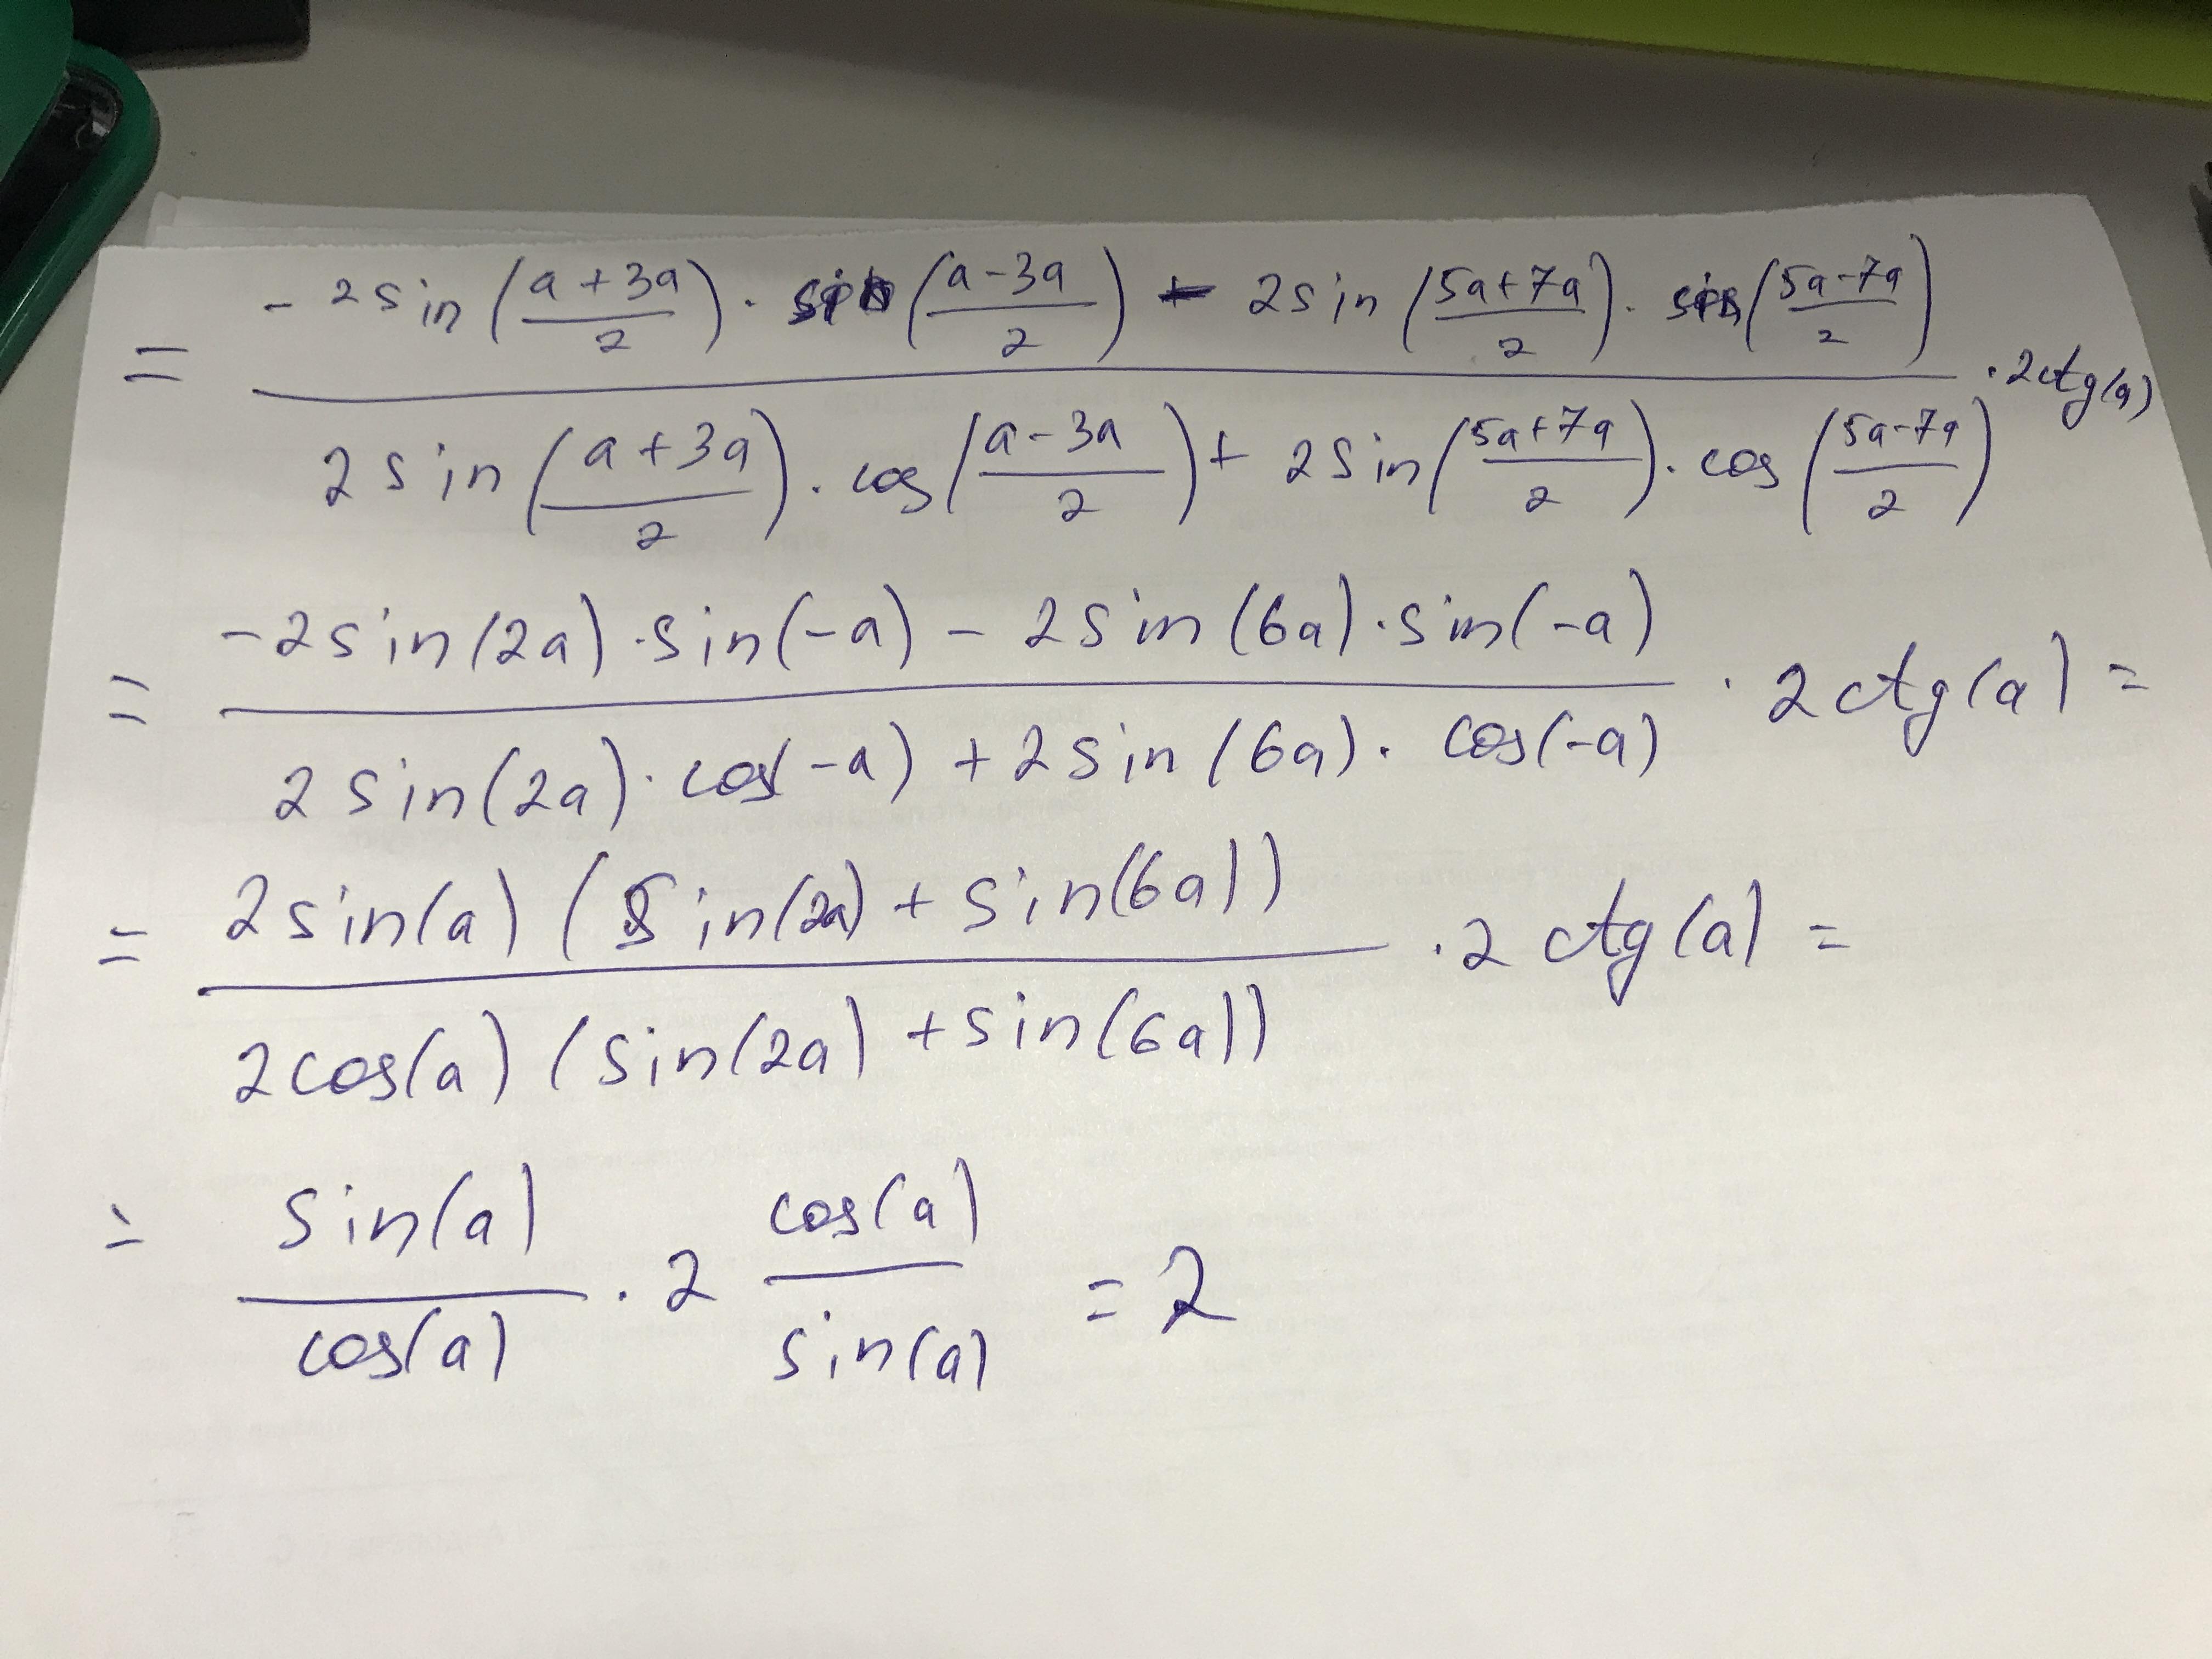 = (-2 sin((a+3a)/2) · sin((a-3a)/2) - 2 sin((5a+7a)/2) · sin((5a-7a)/2)) / (2 sin((a+3a)/2) · cos((a-3a)/2) + 2 sin((5a+7a)/2) · cos((5a-7a)/2)) · 2ctg(a)
= (-2 sin(2a) · sin(-a) - 2 sin(6a) · sin(-a)) / (2 sin(2a) · cos(-a) + 2 sin(6a) · cos(-a)) · 2 ctg(a) =
= (2 sin(a) (sin(2a) + sin(6a))) / (2 cos(a) (sin(2a) + sin(6a))) · 2 ctg(a) =
= sin(a)/cos(a) · 2 cos(a)/sin(a) = 2